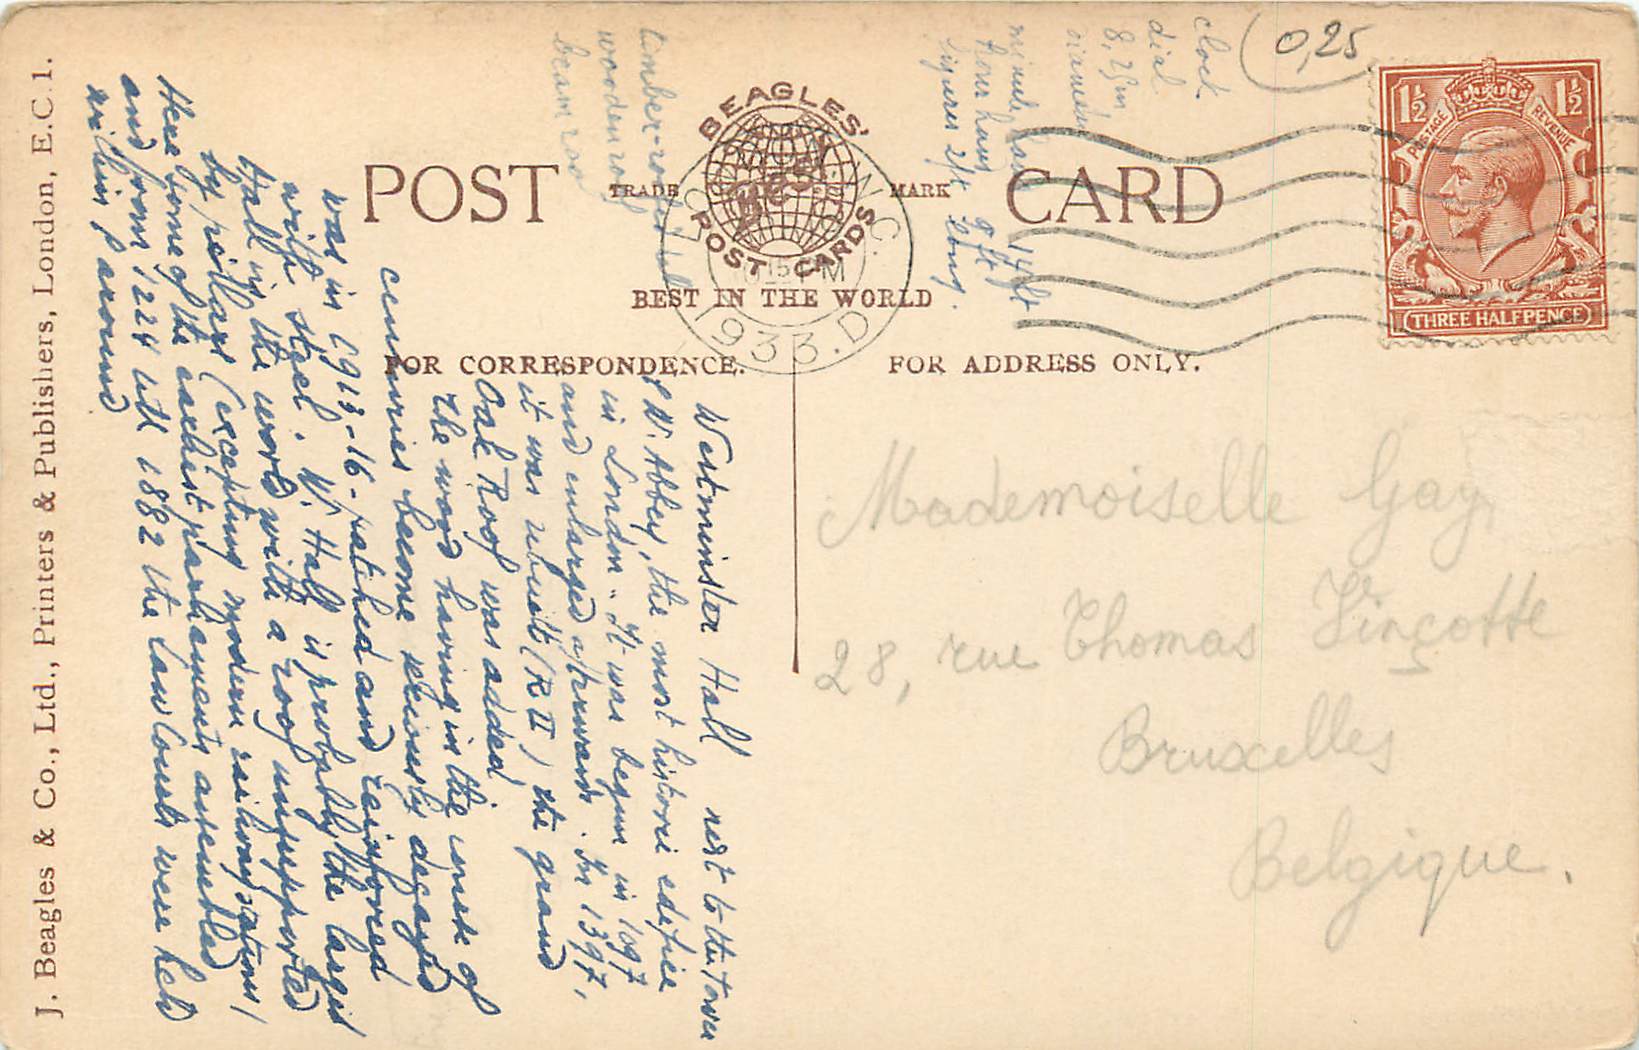 POST CARD
BEAGLES'
BEST
POST CARDS
TRADE MARK
BEST IN THE WORLD
FOR CORRESPONDENCE.
FOR ADDRESS ONLY.
J. Beagles & Co., Ltd., Printers & Publishers, London, E.C.1.
0,25
1½ 1½
POSTAGE REVENUE
THREE HALFPENCE
1933
Mademoiselle Gay
28, rue Thomas Vinçotte
Bruxelles
Belgique.
Westminster Hall next to the Tower
& W. Abbey, the most historic edifice
in London. It was begun in 1097
and enlarged afterwards. In 1397,
it was rebuilt (R II) the grand
Oak Roof was added,
the wood having in the course of
centuries become seriously decayed
was in 1913-16- patched and reinforced
with steel. W. Hall is probably the largest
Hall in the world with a roof unsupported
by pillars (excepting modern railway stations)
Here some of the earliest parliaments assembled
and from 1224 until 1882 the Law Courts were held
within & around
clock
dial
8,25m
diameter
minute hand 14ft
hour hand 9ft
figures 2ft long.
timber-roofed hall
wooden roof
beam roof